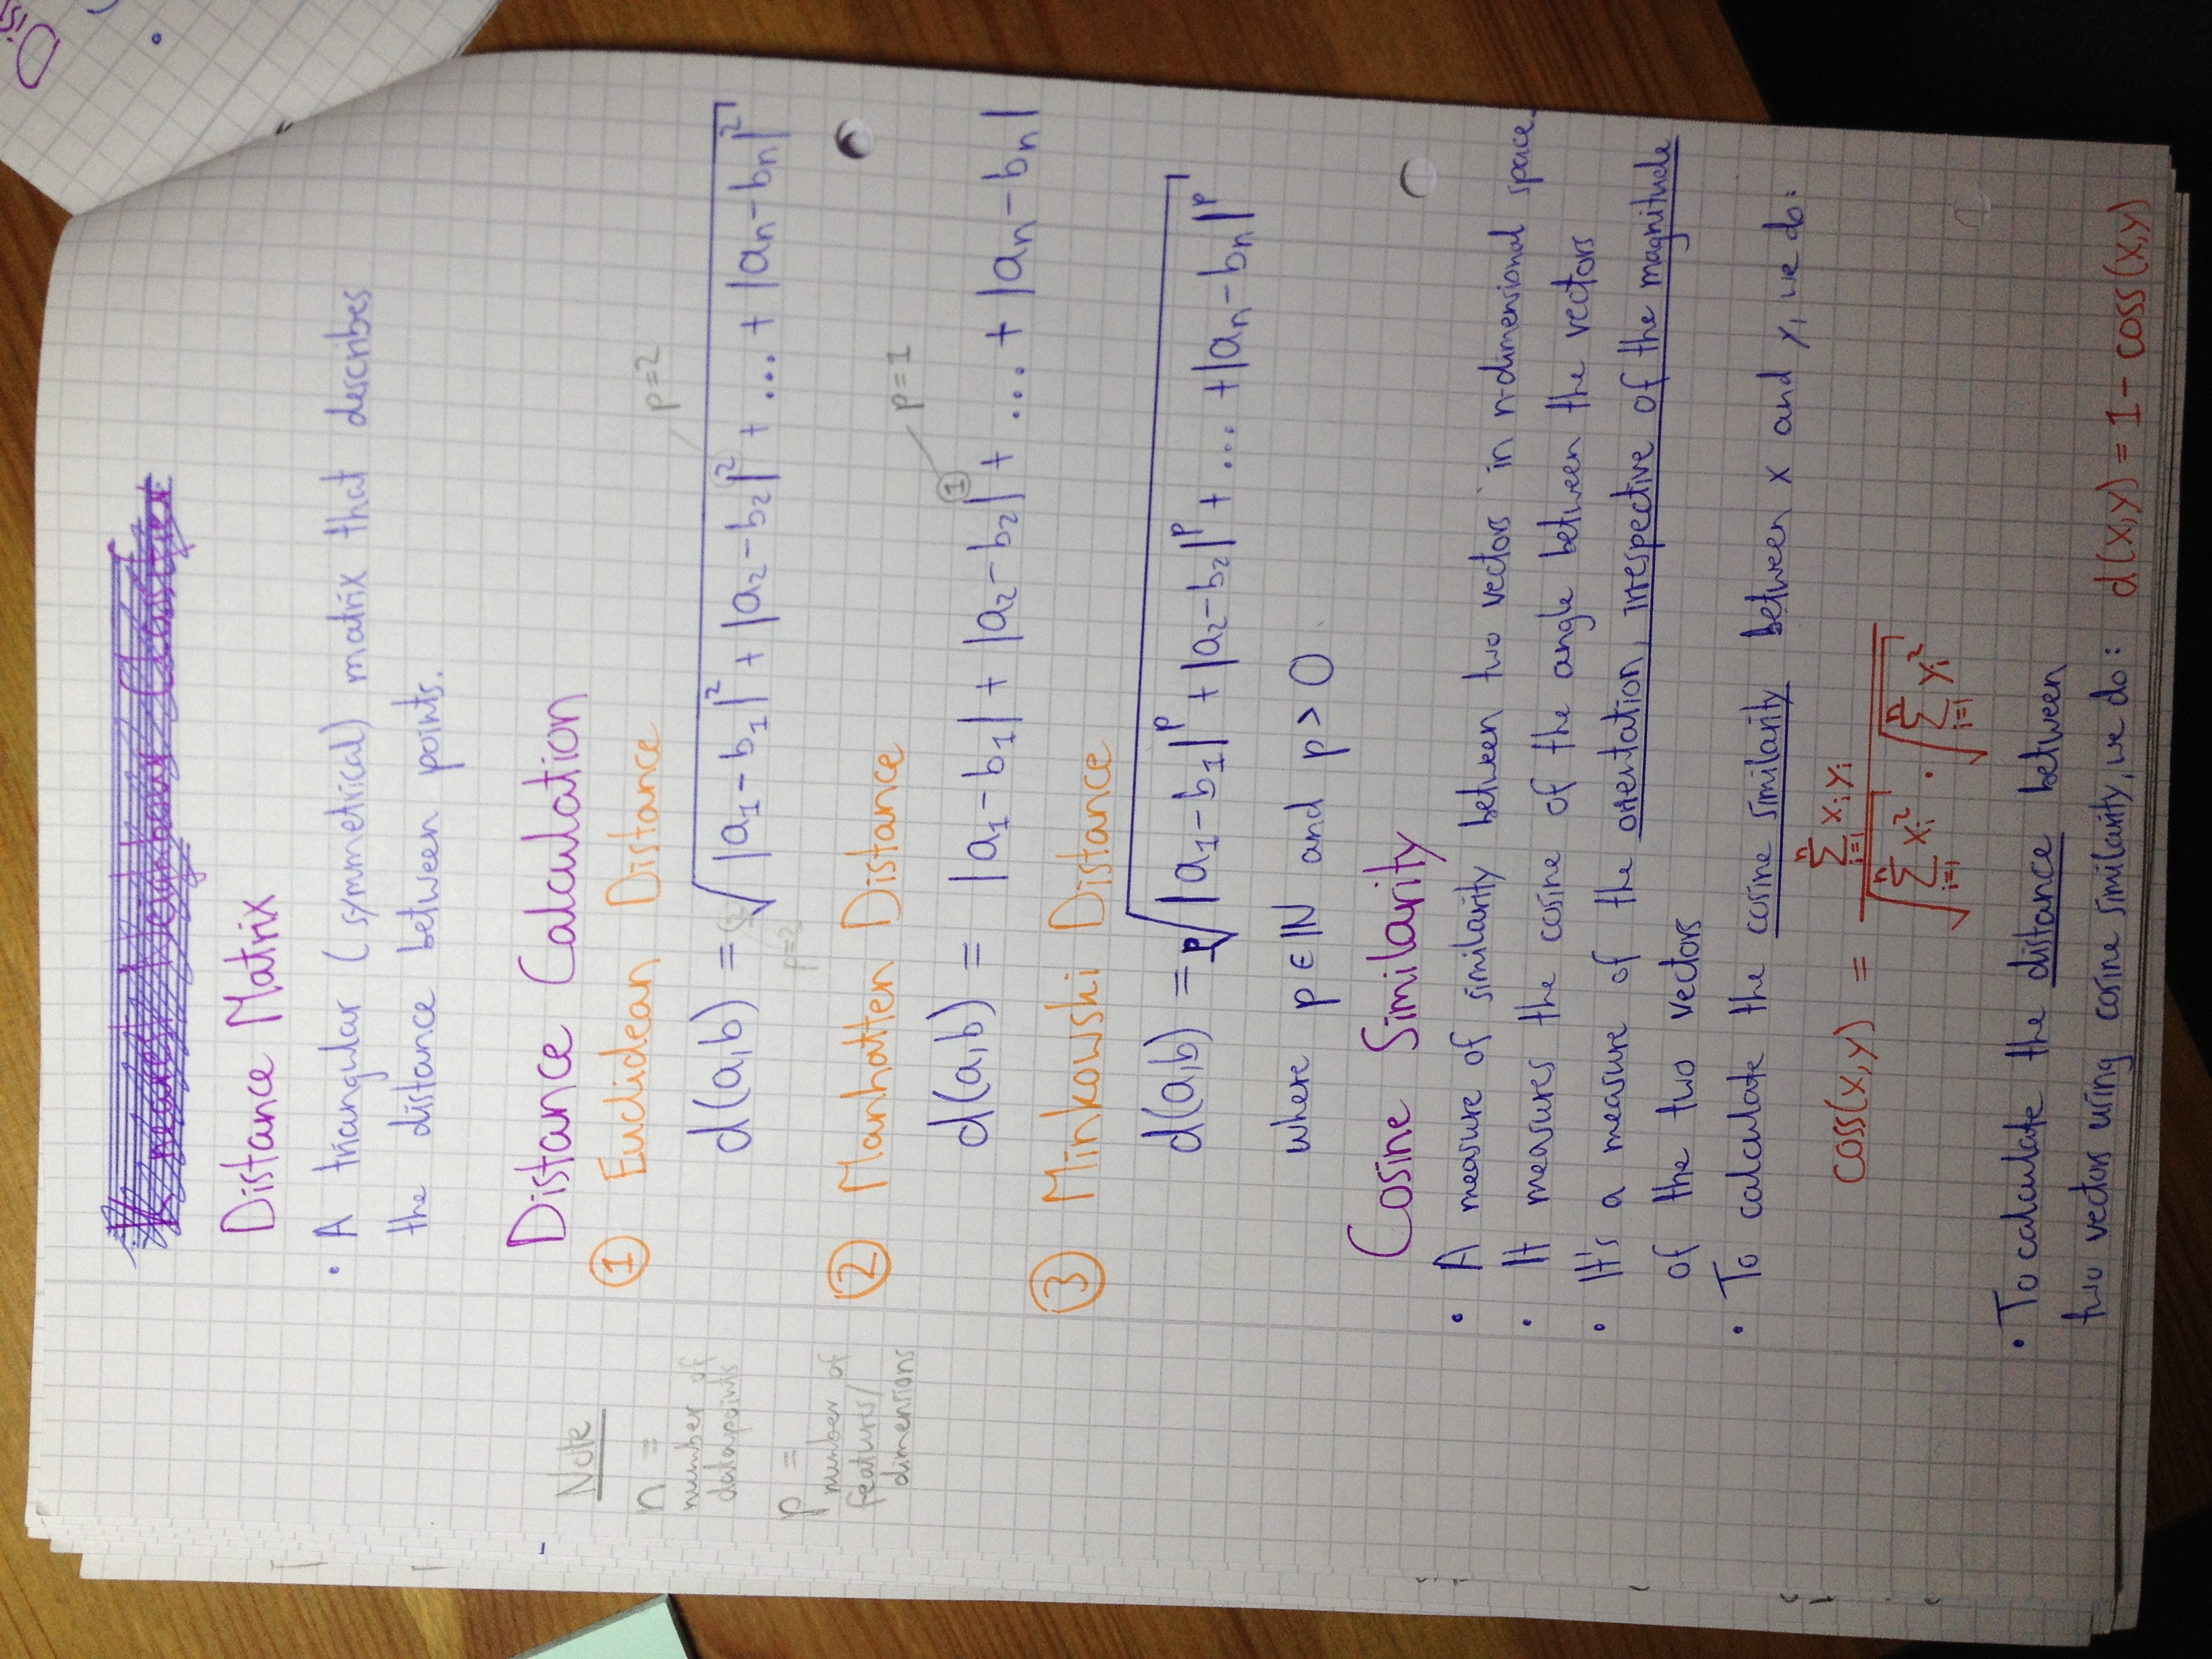 K nearest Neighbour Classifier
Distance Matrix
• A triangular (symmetrical) matrix that describes
the distance between points.
Distance Calculation
Note
n =
number of
datapoints
p =
number of
features/
dimensions
① Euclidean Distance
p=2
d(a,b) = √|a₁-b₁|² + |a₂-b₂|² + ... + |aₙ-bₙ|²
p=2
② Manhatten Distance
p=1
d(a,b) = |a₁-b₁| + |a₂-b₂|① + ... + |aₙ-bₙ|
③ Minkowski Distance
d(a,b) = ᵖ√|a₁-b₁|ᵖ + |a₂-b₂|ᵖ + ... + |aₙ-bₙ|ᵖ
where p ∈ ℕ and p > 0
Cosine Similarity
• A measure of similarity between two vectors in n-dimensional space.
• It measures the cosine of the angle between the vectors
• It's a measure of the orientation, irrespective of the magnitude
of the two vectors
• To calculate the cosine similarity between x and y, we do:
coss(x,y) = (∑ⁿᵢ₌₁ xᵢyᵢ) / (√∑ⁿᵢ₌₁ xᵢ² · √∑ⁿᵢ₌₁ yᵢ²)
• To calculate the distance between
two vectors using cosine similarity, we do: d(x,y) = 1 - coss(x,y)